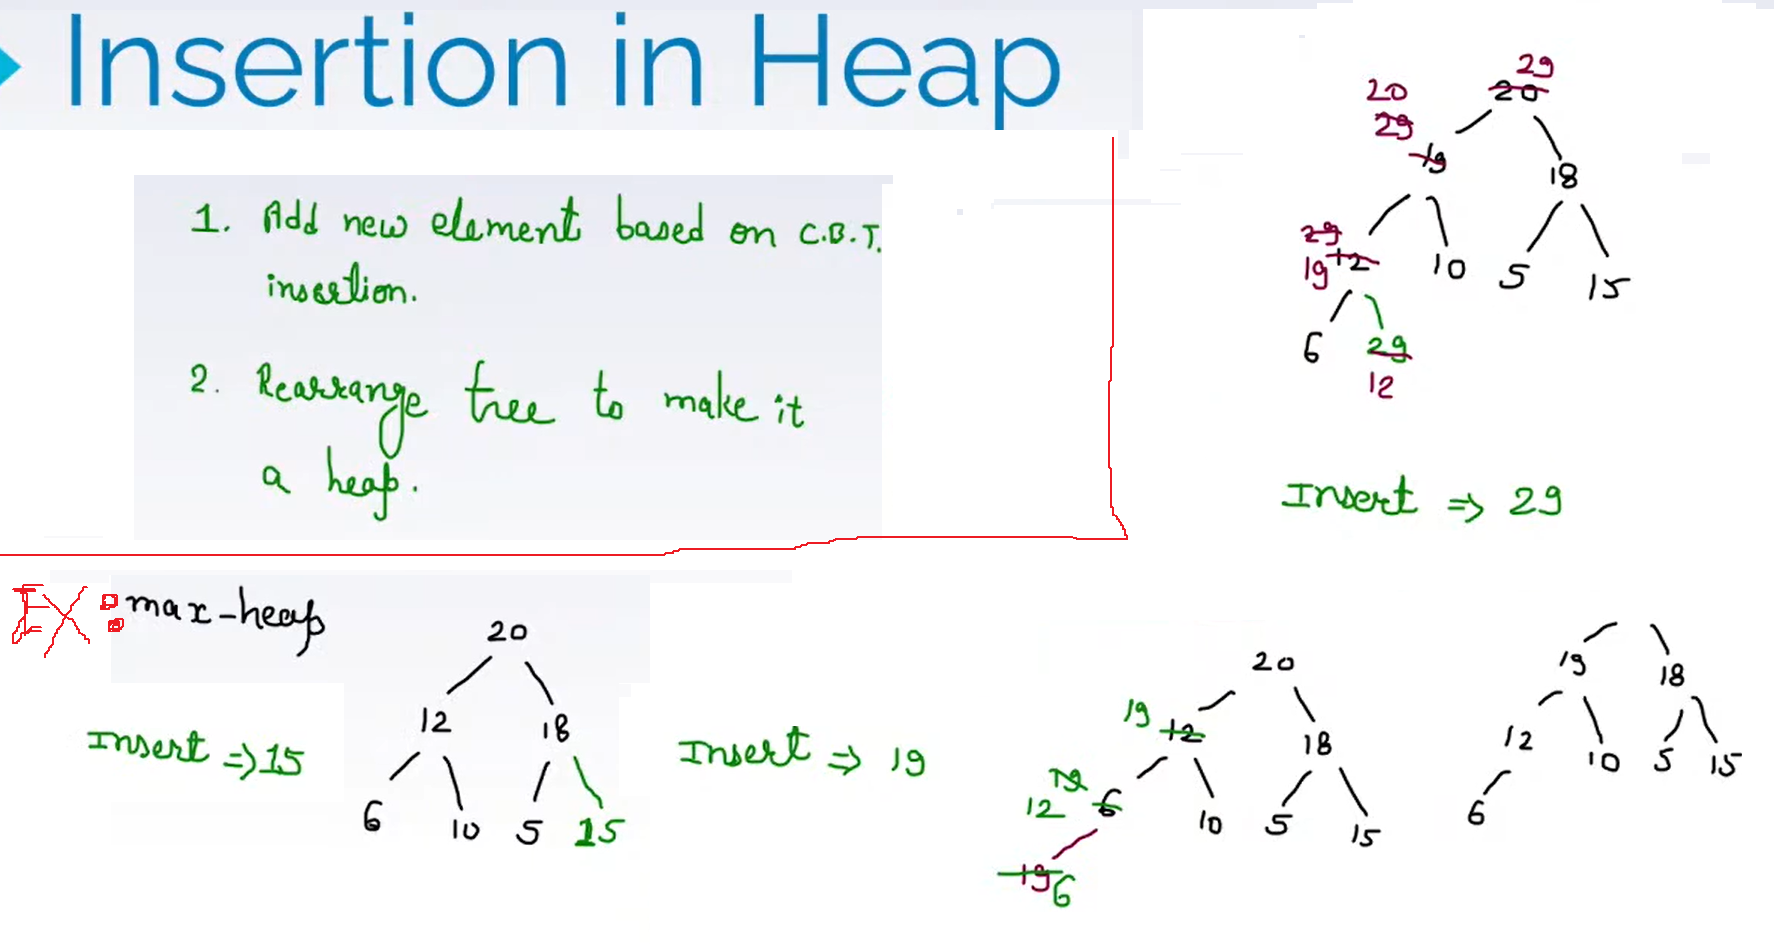 Insertion in Heap
1. Add new element based on C.B.T.
insertion.
2. Rearrange tree to make it
a heap.
29
20 20
29
19 18
29
19 12 10 5 15
6 29
12
Insert ⇒ 29
EX: max-heap
20
12 18
6 10 5 15
Insert ⇒ 15
Insert ⇒ 19
20
19 12 18
19
12 6 10 5 15
19 6
19 18
12 10 5 15
6